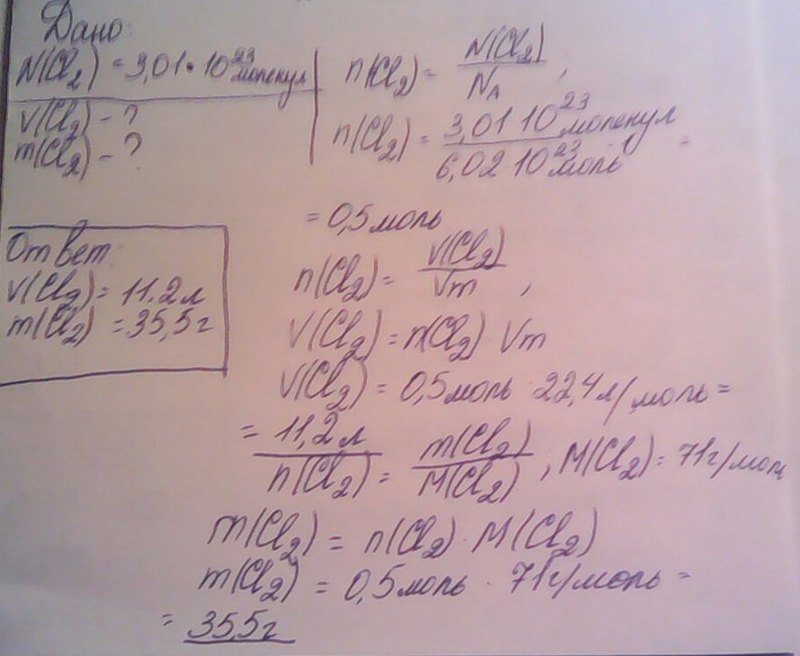 Дано:
N(Cl₂) = 3,01 • 10²³ молекул
V(Cl₂) - ?
m(Cl₂) - ?
n(Cl₂) = N(Cl₂) / N_A ,
n(Cl₂) = 3,01 10²³ молекул / 6,02 10²³ моль =
= 0,5 моль
n(Cl₂) = V(Cl₂) / Vm ,
V(Cl₂) = n(Cl₂) · Vm
V(Cl₂) = 0,5 моль · 22,4 л/моль =
= 11,2 л
n(Cl₂) = m(Cl₂) / M(Cl₂) , M(Cl₂) = 71 г/моль
m(Cl₂) = n(Cl₂) · M(Cl₂)
m(Cl₂) = 0,5 моль · 71 г/моль =
= 35,5 г
Ответ:
V(Cl₂) = 11.2 л
m(Cl₂) = 35,5 г